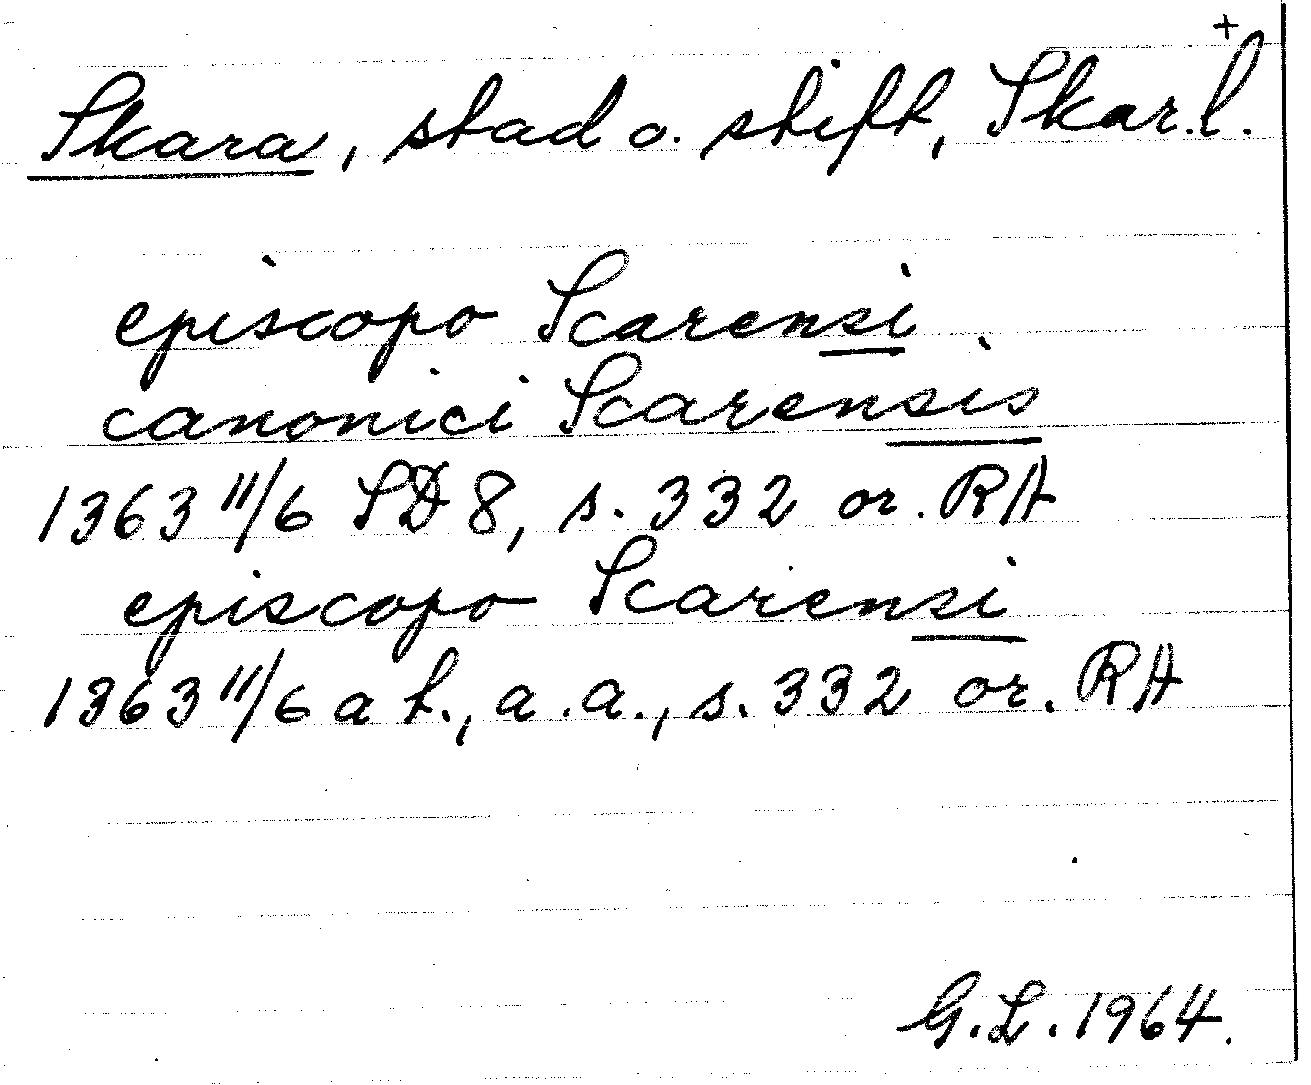 +
Skara, stad o. stift, Skar.l.
episcopo Scarensi
canonici Scarensis
1363 11/6 SD 8, s. 332 or. RA
episcopo Scarensi
1363 11/6 a t., a.a., s. 332 or. RA
G.L. 1964.